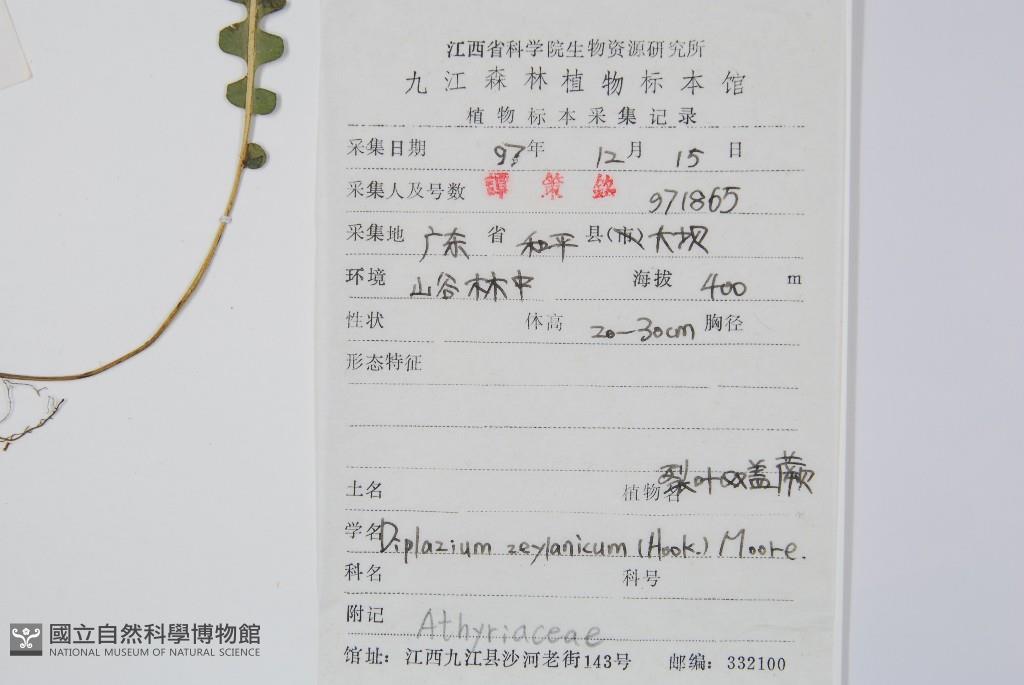 江西省科学院生物资源研究所
九江森林植物标本馆
植物标本采集记录
采集日期 97年 12月 15日
采集人及号数 譚策銘 971865
采集地 广东 省 和平 县(市) 大坝
环境 山谷林中 海拔 400 m
性状 体高 20—30cm 胸径
形态特征
土名 植物名 裂叶双盖蕨
学名 Diplazium zeylanicum (Hook.) Moore.
科名 科号
附记 Athyriaceae
馆址：江西九江县沙河老街143号 邮编：332100
國立自然科學博物館
NATIONAL MUSEUM OF NATURAL SCIENCE